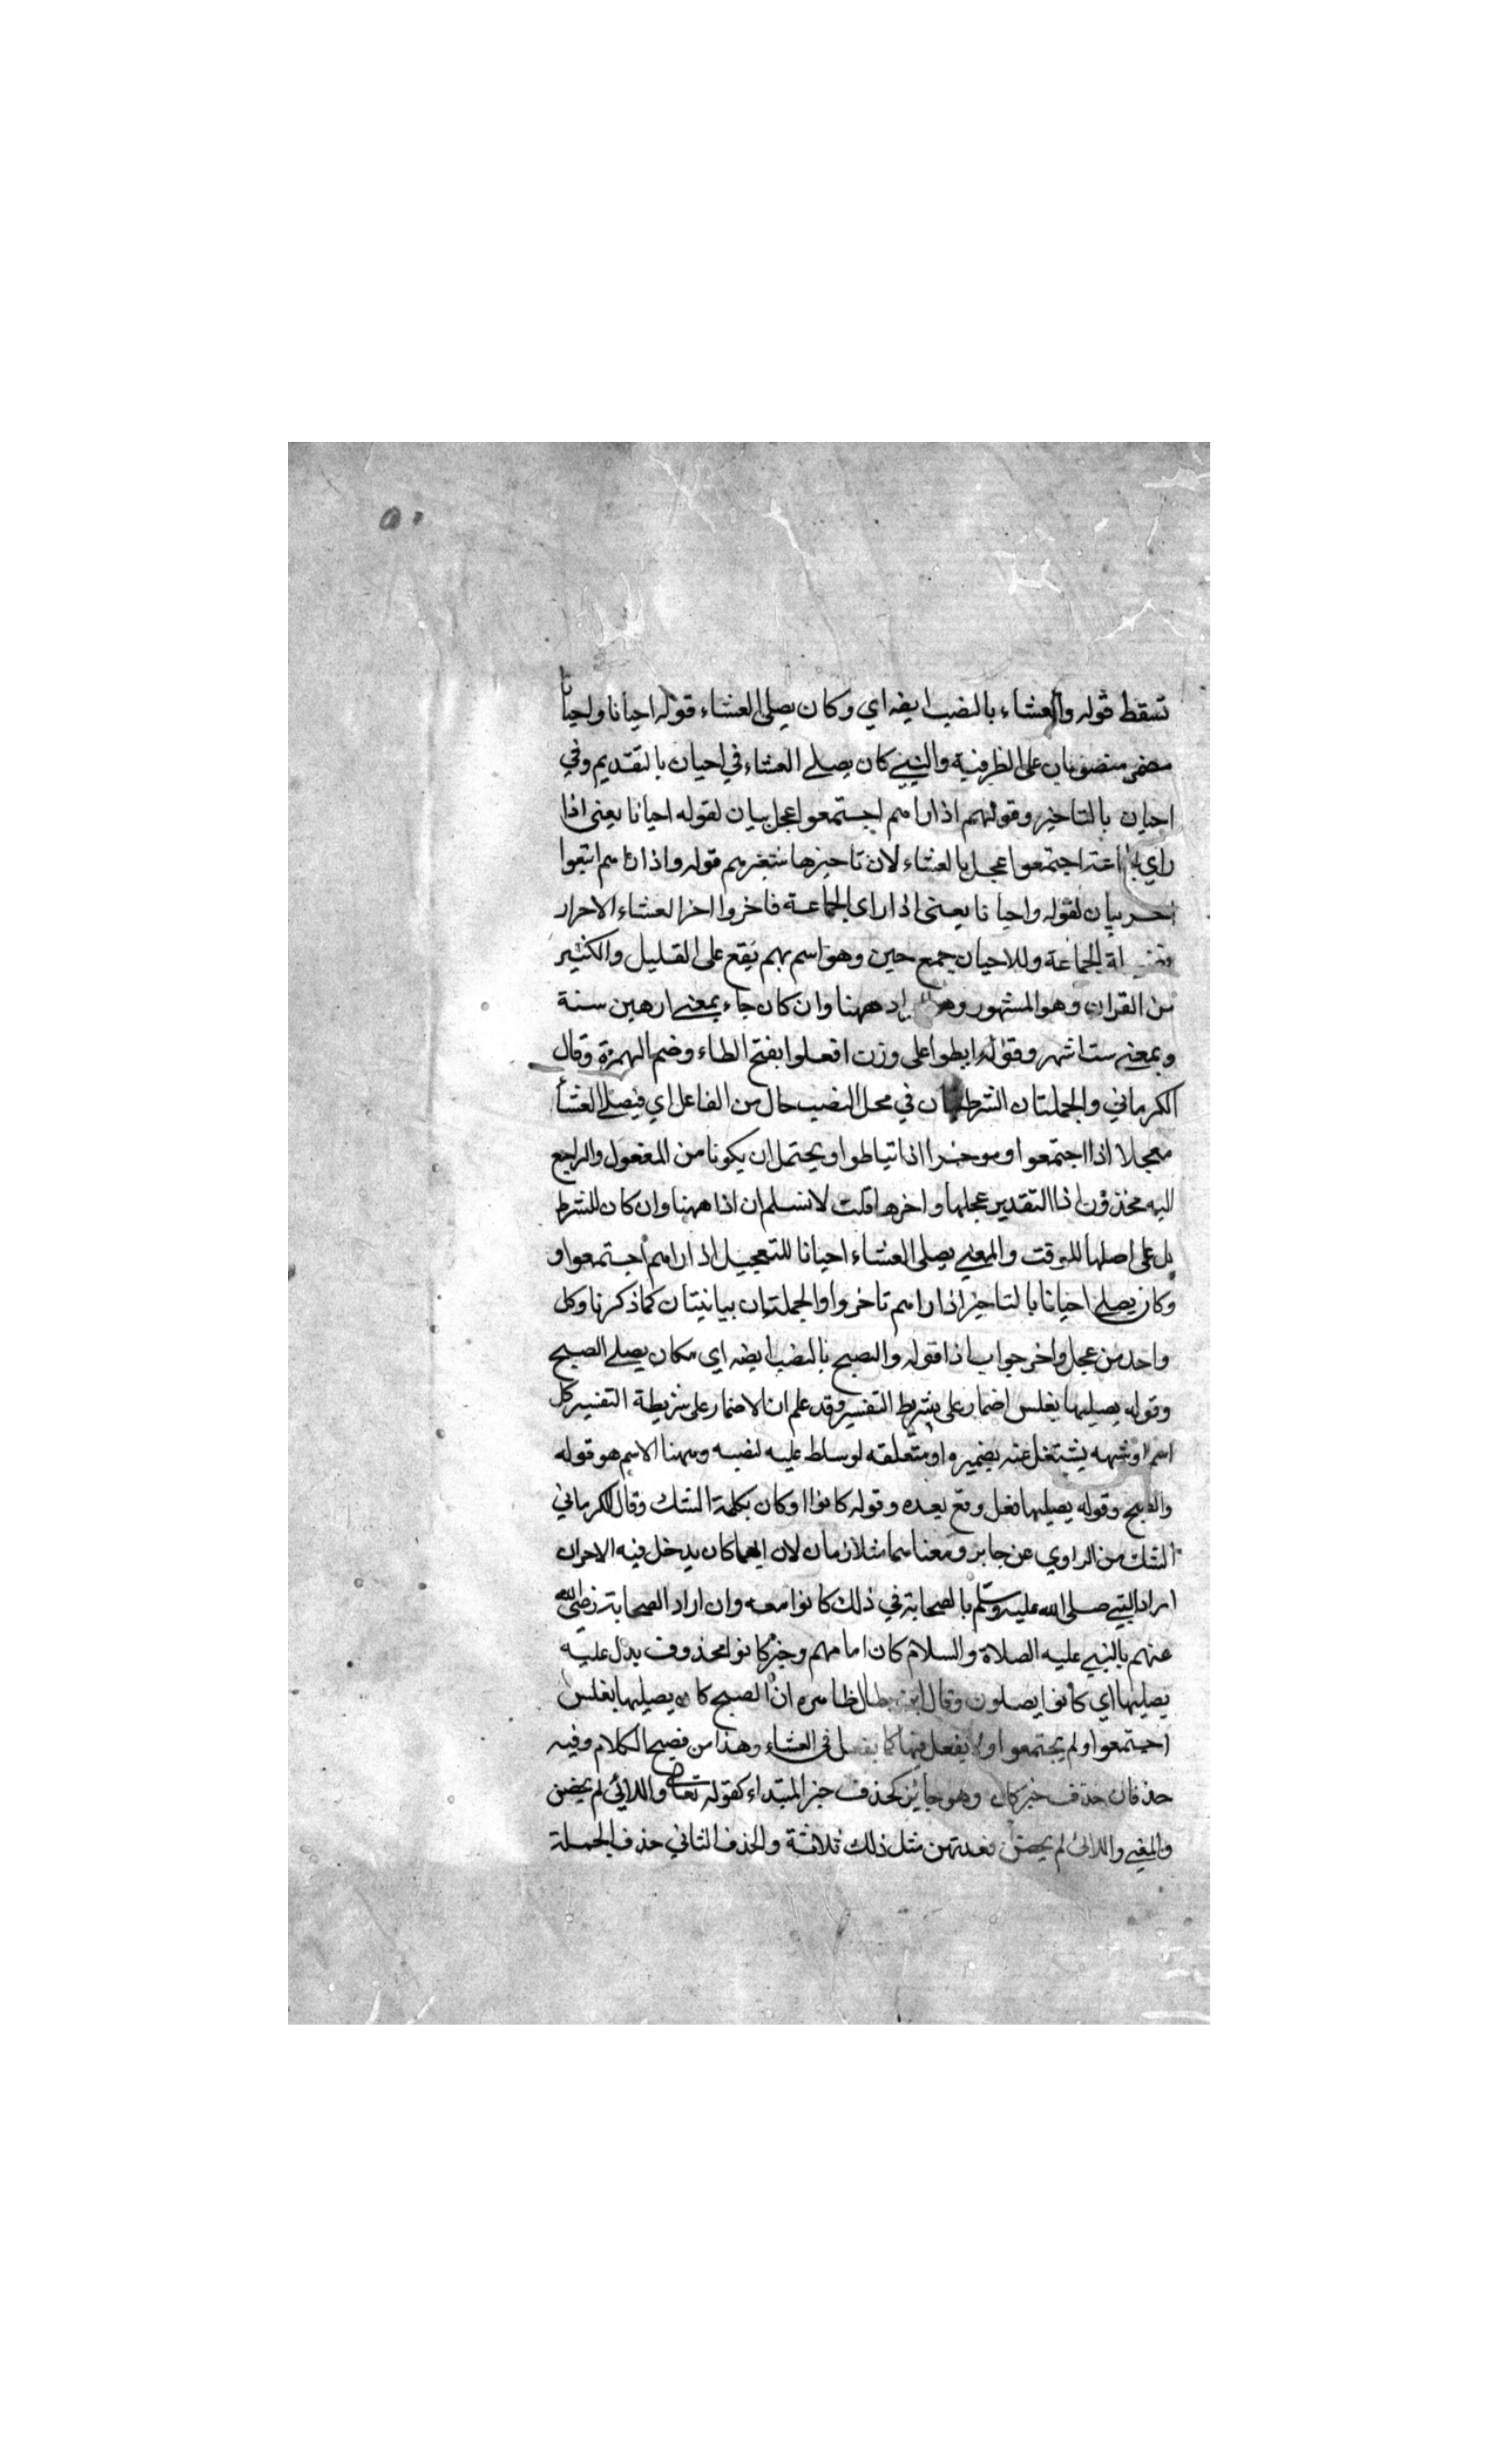 ٥٠
تسقط قوله والعشاء بالنصب ايضه اي وكان يصلي العشاء قوله احيانا واحيانا
منصوبان على الظرفية والنبي كان يصلي العشاء في احيان بالتقديم وفي
احيان بالتاخير وقولهم اذا راهم اجتمعوا عجل بيان لقوله احيانا يعنى اذا
راي اجتمعوا عجل بالعشاء لان تاخيرها قوله واذا راهم ابتعوا
اخر بيان لقوله واحيانا يعنى اذا راى الجماعة فاخروا اخر العشاء الاحراز
الجماعة وللاحيان جمع حين وهو اسم بهم يقع على القليل والكثير
من القران وهو المشهور وهو ههنا وان كان جاء بمعنى اربعين سنة
وبمعنى ست اشهر وقوله ابطوا على وزن افعلوا بفتح الطاء وضم الهمزة وقال
الكرماني والجملتان الشرطيتان في محل النصب حال من الفاعل اي فيصلي العشأ
معجلا اذا اجتمعوا وموخرا اذا تباطوا ويحتمل ان يكونا من المفعول والراجع
اليه محذوف اذا التقدير عجلها واخرها قلت لا نسلم ان اذا ههنا وان كان للشرط
بل على اصلها للوقت والمعنى يصلى العشاء احيانا للتعجيل اذا راهم اجتمعوا و
وكان يصلي احيانا بالتاخير اذا راهم تاخروا والجملتان بيانيتان كما ذكرنا وكل
واحد من عجل واخر جواب اذا قوله والصبح بالنصب ايضه اي مكان يصلي الصبح
وقوله يصليها بغلس اضمار على شريط التفسير وقد علم ان الاضمار على شريطة التفسير كل
اسم او شبهه يشتغل عنه بضميره او متعلقه لو سلط عليه لنصبه وههنا الاسم هو قوله
والصبح وقوله يصليها فعل وقع بعده وقوله كانوا او كان بكلمة الشك وقال الكرماني
الشك من الراوي عن جابر ومعناهما متلازمان لان ايهما كان يدخل فيه الاخران
اراد النبي صلى الله عليه وسلم بالصحابة في ذلك كانوا معه وان اراد الصحابة رضي الله
عنهم بالنبي عليه الصلاة والسلام كان امامهم وخبر كانوا محذوف يدل عليه
يصليها اي كانوا يصلون وقال ابن بطال ظاهره ان الصبح كان يصليها بغلس
اجتمعوا او لم يجتمعوا ولا يفعل فيها كما يفعل في العشاء وهذا من فصيح الكلام وفيه
حذفان حذف خبر كان وهو جايز كحذف خبر المبتداء كقوله تعالى واللائي لم يحضن
والمعنى واللائي لم يحضن فعدتهن مثل ذلك ثلاثة والحذف الثاني حذف الجملة